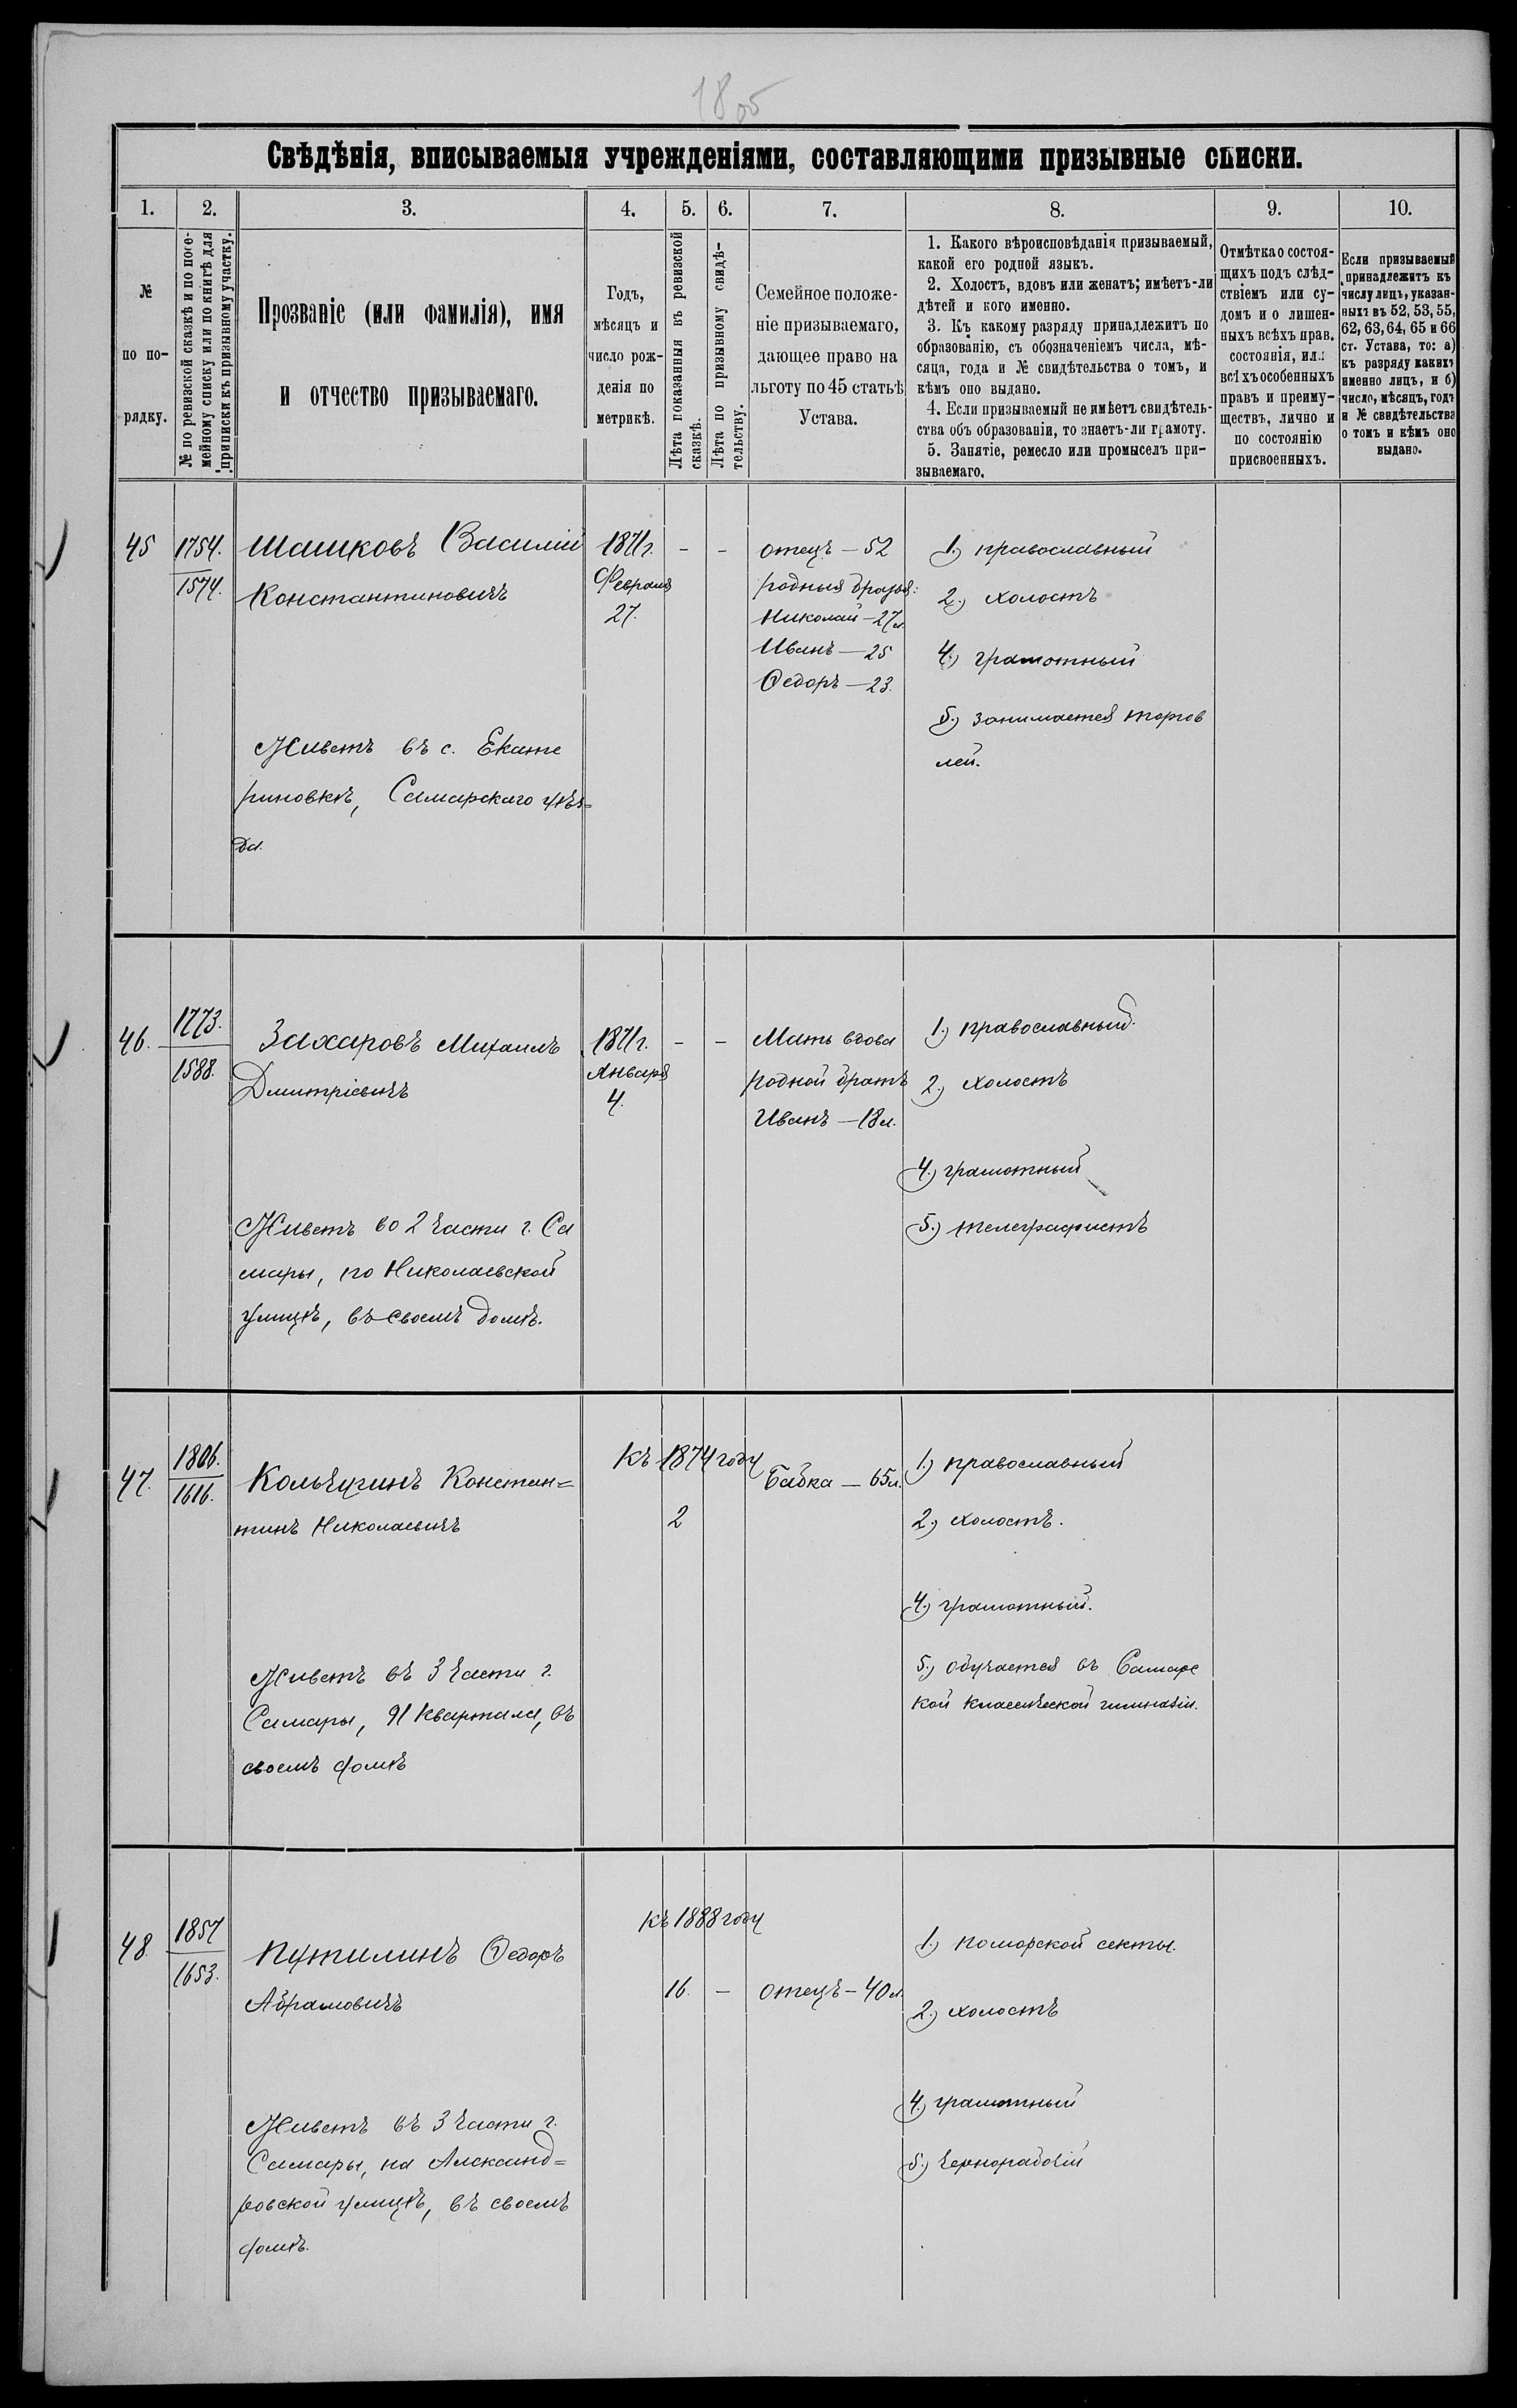 18
Свѣдѣнія, вписываемыя учрежденіями, составляющими призывные списки.
1.
2.
3.
4.
5.
6.
7.
8.
9.
10.
№
по по-
рядку.
№ по ревизской сказкѣ и по посе-
мейному списку или по книгѣ для
приписки къ призывному участку.
Прозваніе (или фамилія), имя
и отчество призываемаго.
Годъ,
мѣсяцъ и
число рож-
денія по
метрикѣ.
Лѣта показанныя въ ревизской
сказкѣ.
Лѣта по призывному свидѣ-
тельству.
Семейное положе-
ніе призываемаго,
дающее право на
льготу по 45 статьѣ
Устава.
1. Какого вѣроисповѣданія призываемый,
какой его родной языкъ.
2. Холостъ, вдовъ или женатъ; имѣетъ-ли
дѣтей и кого именно.
3. Къ какому разряду принадлежитъ по
образованію, съ обозначеніемъ числа, мѣ-
сяца, года и № свидѣтельства о томъ, и
кѣмъ оно выдано.
4. Если призываемый не имѣетъ свидѣтель-
ства объ образованіи, то знаетъ-ли грамоту.
5. Занятіе, ремесло или промыселъ при-
зываемаго.
Отмѣтка о состоя-
щихъ подъ слѣд-
ствіемъ или су-
домъ и о лишен-
ныхъ всѣхъ прав.
состоянія, или
всѣхъ особенныхъ
правъ и преиму-
ществъ, лично и
по состоянію
присвоенныхъ.
Если призываемый
принадлежитъ къ
числу лицъ, указан-
ныхъ въ 52, 53, 55,
62, 63, 64, 65 и 66
ст. Устава, то: а)
къ разряду какихъ
именно лицъ, и б)
число, мѣсяцъ, годъ
и № свидѣтельства
о томъ и кѣмъ оно
выдано.
45
1754.
1574.
Шашковъ Василий
Константиновичъ
Живетъ въ с. Екате
риновкѣ, Самарскаго уѣз=
да.
1871г.
Февраля
27.
-
-
отецъ - 52
родныя братья:
Николай - 27л.
Иванъ - 25
Ѳедоръ - 23.
1.) православный
2.) холостъ
4.) грамотный
5.) занимается торгов
лей.
46.
1773.
1588.
Захаровъ Михаилъ
Дмитріевичъ
Живетъ во 2 части г. Са
мары, по Николаевской
улицѣ, въ своемъ домѣ.
1871г.
Января
4.
-
-
Мать вдова
родной братъ
Иванъ - 18л.
1.) православный.
2.) холостъ
4.) грамотный
5.) телеграфистъ
47.
1806.
1616.
Кольчугинъ Констан=
тинъ Николаевичъ
Живетъ въ 3 части г.
Самары, 91 квартала, въ
своемъ домѣ
Къ 1874 году
2
Бабка - 65л.
1.) православный
2.) холостъ.
4.) грамотный.
5.) обучается въ Самарс
кой классической гимназіи.
48
1857
1653.
Путилинъ Ѳедоръ
Абрамовичъ
Живетъ въ 3 части г.
Самары, на Александ=
ровской улицѣ, въ своемъ
домѣ.
Къ 1888 году
16.
-
отецъ - 40л.
1.) поморской секты.
2.) холостъ
4.) грамотный
5.) чернорабочій